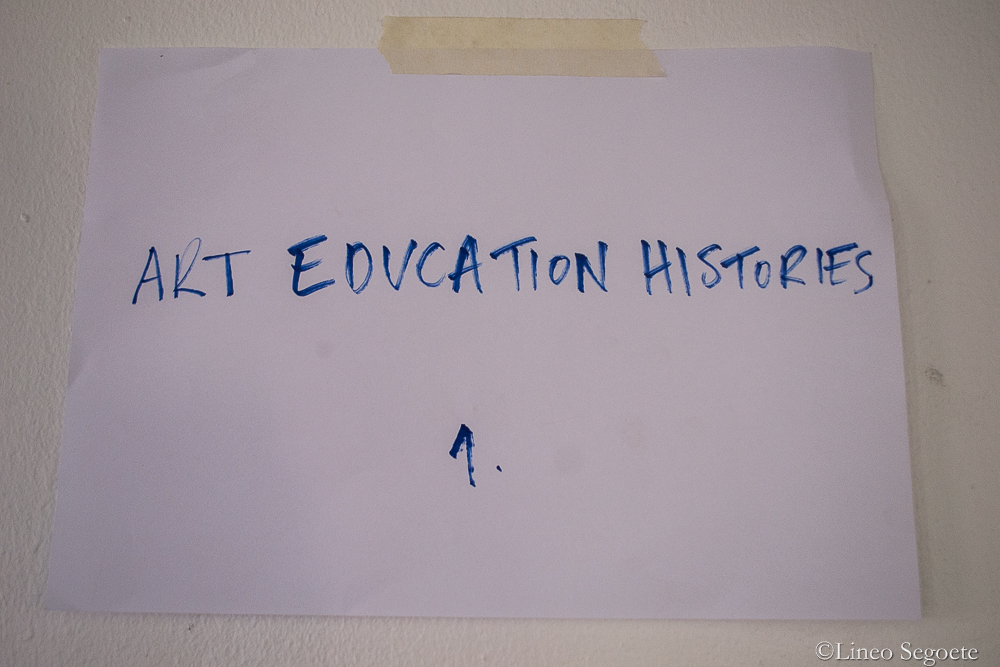 ART EDUCATION HISTORIES
1.
©Lineo Segoete